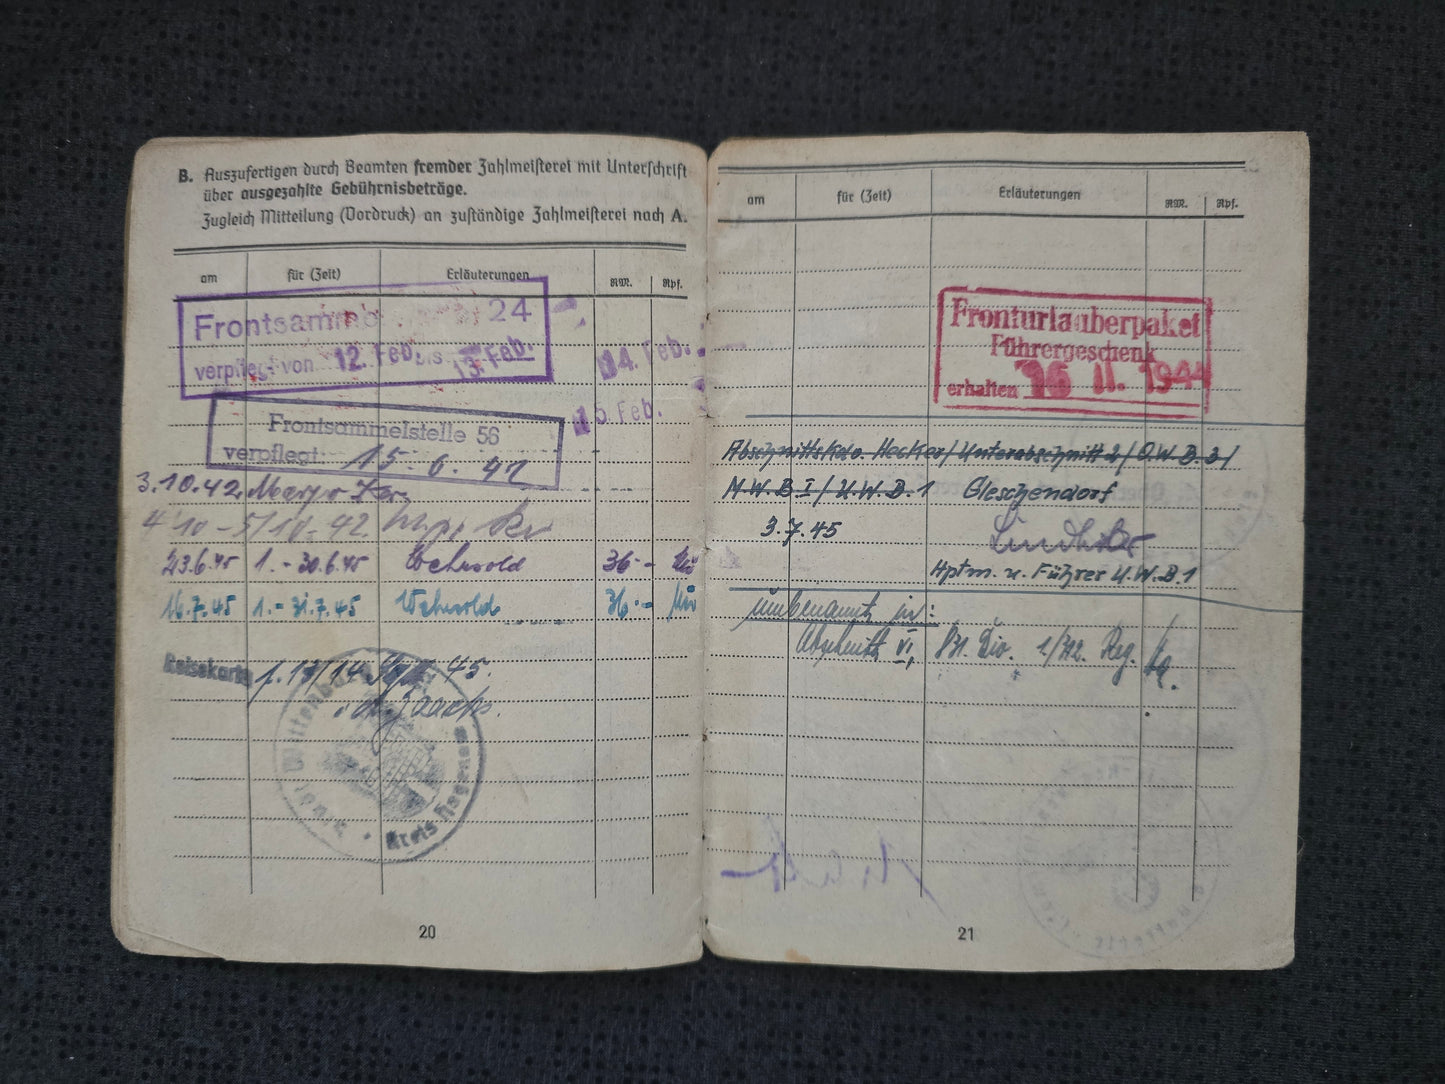 B. Auszufertigen durch Beamten fremder Zahlmeisterei mit Unterschrift
über ausgezahlte Gebührnisbeträge.
Zugleich Mitteilung (Vordruck) an zuständige Zahlmeisterei nach A.
am für (Zeit) Erläuterungen RM. Rpf.
24
verpflegt von 12. Feb. bis 13. Feb.
14. Feb.
15. Feb.
Frontsammelstelle 56
verpflegt 15. 6. 42
3.10.42
4/10 - 5/10. 42
23.6.45 1. - 30.6.45 36.-
16.7.45 1. - 31.7.45 36.-
Reisekarte f. 13/14 45.
Kreis Hagenow
20
am für (Zeit) Erläuterungen RM. Rpf.
Fronturlauberpaket
Führergeschenk
erhalten 16 11. 1944
Abschnittskdo. Hecker/Unterabschnitt 2/O.W.B.3/
M.W.B I/U.W.B.1 Gleschendorf
3.7.45
Hptm. u. Führer U.W.B.1
umbenannt in:
Abschnitt VI, Div. Reg.
21